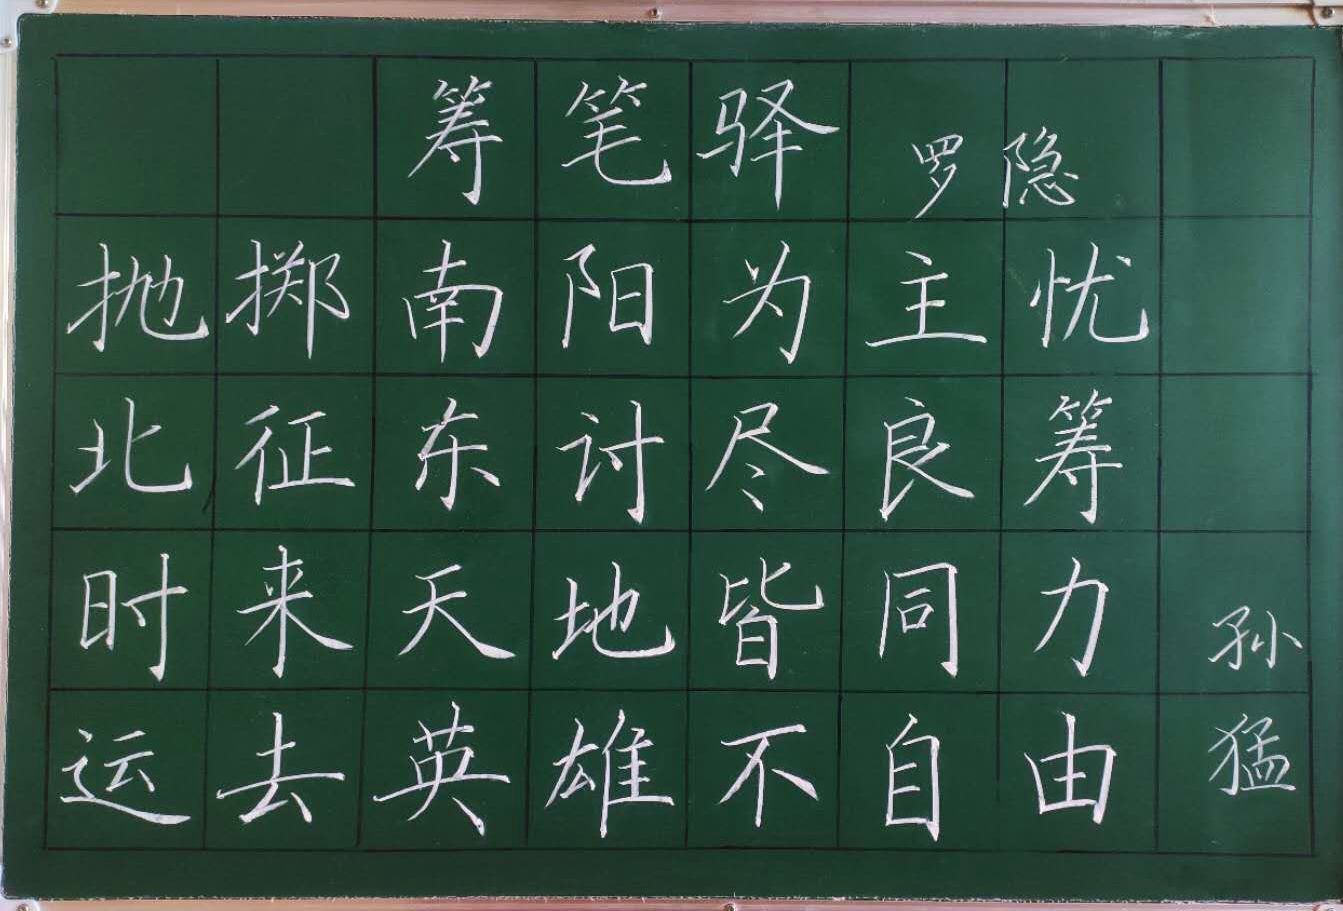 筹笔驿 罗隐
抛掷南阳为主忧
北征东讨尽良筹
时来天地皆同力
运去英雄不自由
孙猛